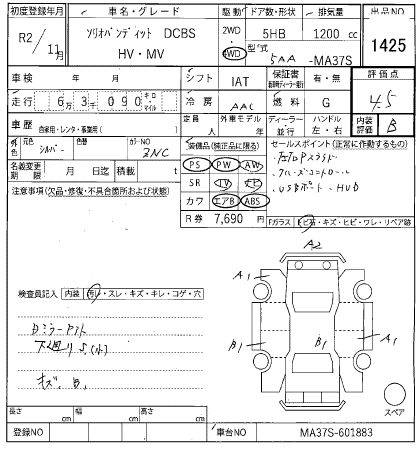 初度登録年月 車名・グレード 駆動 ドア数・形状 排気量 出品NO
R2/11月 ソリオバンディット DCBS 2WD 4WD 5HB 1200 cc 1425
HV・MV 型式 5AA -MA37S
車検 年 月 シフト IAT 保証書 有・無 評価点
走行 6万3千090 キロ・マイル 冷房 AAC 燃料 G 4.5
車歴 自家用・レンタ・事業用( ) 定員 人 外車モデル 年 ディーラー 並行 ハンドル 左・右 内装評価 B
外色 元色 シルバー 色替 カラーNO ZNC 装備品(純正品に限る) セールスポイント(正常に作動するもの)
名義変更期限 月 日迄 積載量 t PS PW AW
注意事項(欠品・修復・不具合箇所および状態) SR TV ナビ ・クルーズコントロール
カワ エアB ABS ・USBポート・HUD
R券 7,690 円 Fガラス E ヒ石・キズ・ヒビ・ワレ・リペア跡
A2
A1
検査員記入 内装 汚レ・スレ・キズ・キレ・コゲ・穴
Dミラーアウト
下廻りS(小) B1 B1 A1
キズ、B1
スペア
長さ cm 幅 cm 高さ cm
登録NO 車台NO MA37S-601883